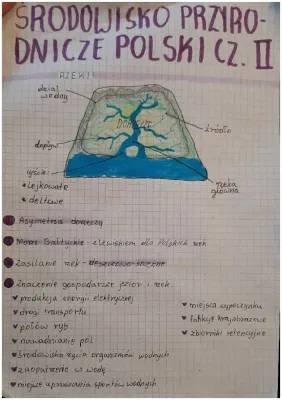 ŚRODOWISKO PRZYRO-
DNICZE POLSKI CZ. II
RZEKI
dział
wodny
DORZECZE
źródło
dopływ
ujście:
lejkowate
deltowe
rzeka
główna
Asymetria dorzeczy
Morze Bałtyckie - zlewiskiem dla Polskich rzek
Zasilanie rzek - deszczowo-śnieżne
Znaczenie gospodarcze jezior i rzek
produkcja energii elektrycznej
drogi transportu
połów ryb
nawadnianie pól
środowisko życia organizmów wodnych
zaopatrzenie w wodę
miejsce uprawiania sportów wodnych
miejsca wypoczynku
krajobrazowe
zbiorniki retencyjne